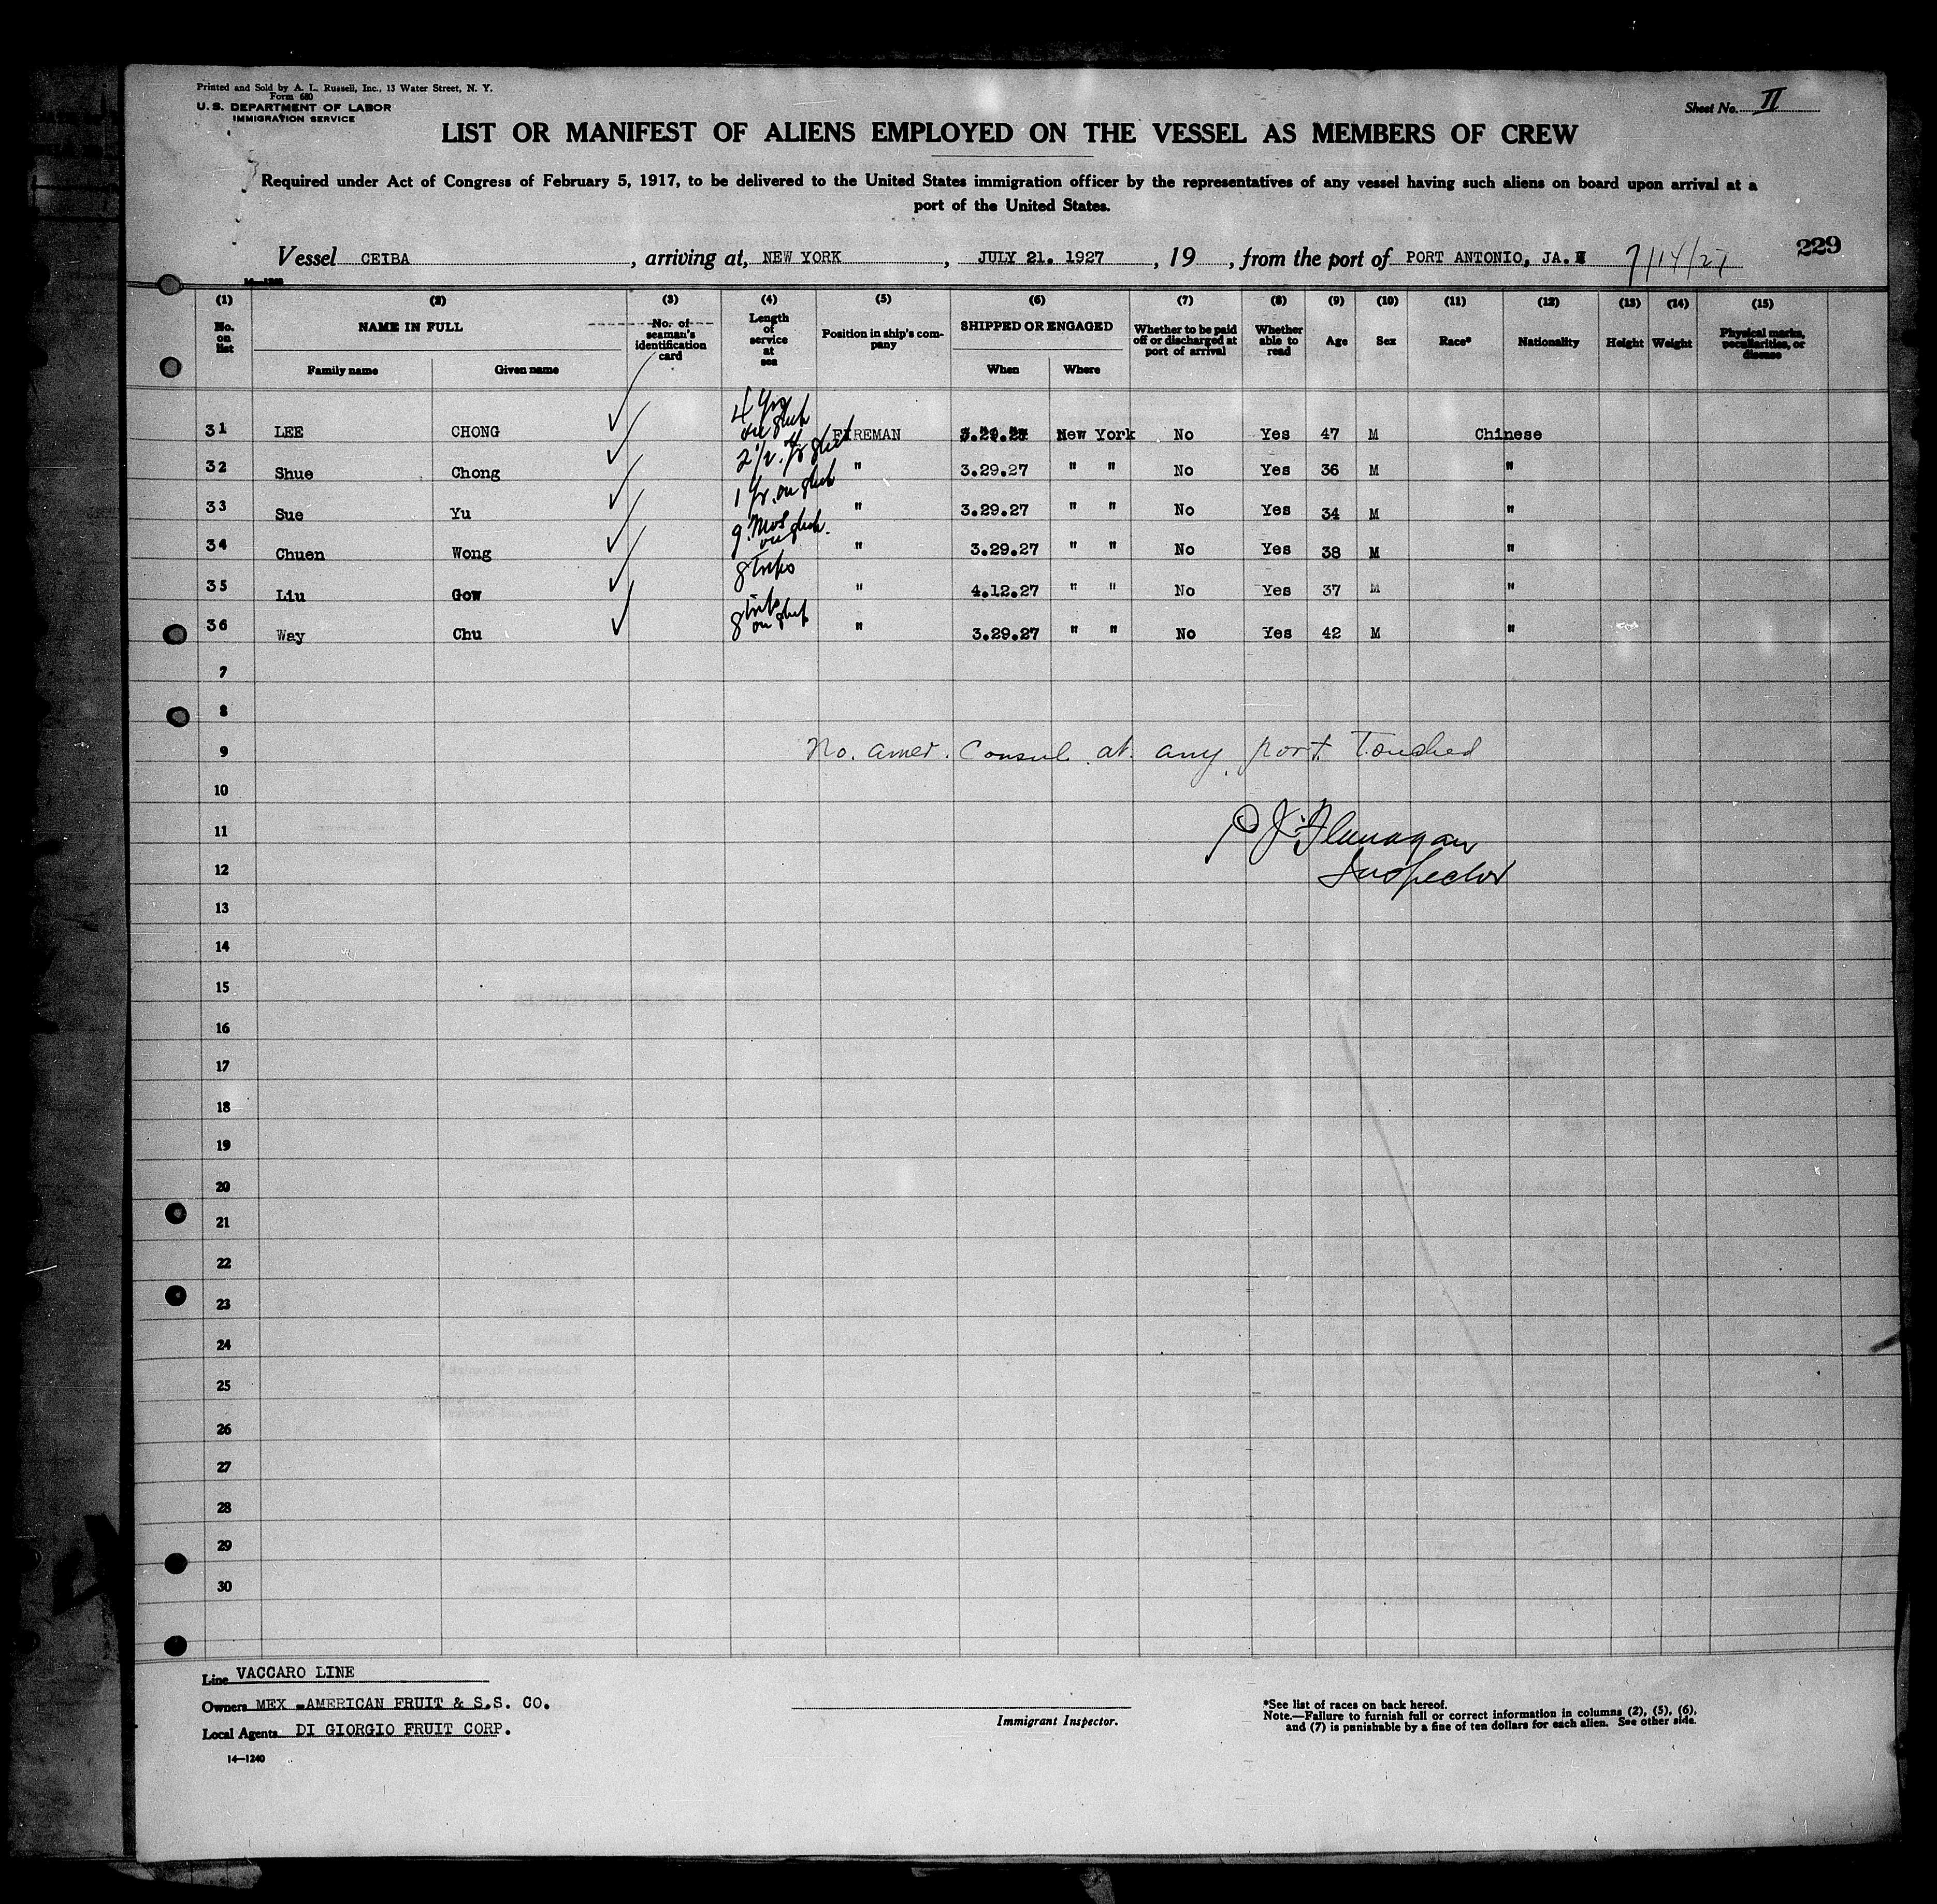 Printed and Sold by A. L. Russell, Inc., 13 Water Street, N. Y.
Form 680
U. S. DEPARTMENT OF LABOR
IMMIGRATION SERVICE
Sheet No. II
LIST OR MANIFEST OF ALIENS EMPLOYED ON THE VESSEL AS MEMBERS OF CREW
Required under Act of Congress of February 5, 1917, to be delivered to the United States immigration officer by the representatives of any vessel having such aliens on board upon arrival at a
port of the United States.
229
Vessel CEIBA, arriving at, NEW YORK, JULY 21. 1927, 19 , from the port of PORT ANTONIO, JA. 7/14/27
(1) (2) (3) (4) (5) (6) (7) (8) (9) (10) (11) (12) (13) (14) (15)
No. on list NAME IN FULL No. of seaman's identification card Length of service at sea Position in ship's company SHIPPED OR ENGAGED Whether to be paid off or discharged at port of arrival Whether able to read Age Sex Race* Nationality Height Weight Physical marks, peculiarities, or disease
Family name Given name When Where
31 LEE CHONG 4 yrs FIREMAN 3.29.27 New York No Yes 47 M Chinese
32 Shue Chong 2 1/2 yr " 3.29.27 " " No Yes 36 M "
33 Sue Yu 1 yr. on ship " 3.29.27 " " No Yes 34 M "
34 Chuen Wong 9 Mos on ship. " 3.29.27 " " No Yes 38 M "
35 Liu Gow 8 Trips " 4.12.27 " " No Yes 37 M "
36 Way Chu 8 trips on ship " 3.29.27 " " No Yes 42 M "
7
8
9 No. amer. Consul at any port Touched
10
11 P J Flanagan
12 Inspector
13
14
15
16
17
18
19
20
21
22
23
24
25
26
27
28
29
30
Line VACCARO LINE
Owners MEX -AMERICAN FRUIT & S.S. CO.
Local Agents DI GIORGIO FRUIT CORP.
14—1240
Immigrant Inspector.
*See list of races on back hereof.
Note.—Failure to furnish full or correct information in columns (2), (5), (6),
and (7) is punishable by a fine of ten dollars for each alien. See other side.